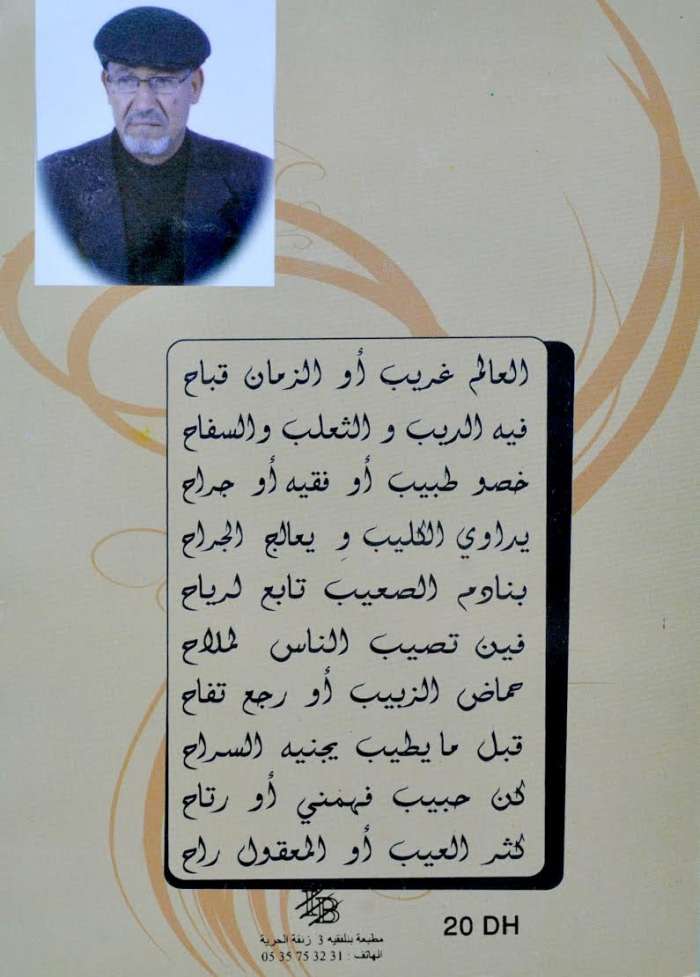 العالم غريب أو الزمان قباح
فيه الديب و الثعلب والسفاح
خصو طبيب أو فقيه أو جراح
يداوي الكليب وِ يعالج الجراح
بنادم الصعيب تابع لرياح
فين تصيب الناس لملاح
حماض الزبيب أو رجع تفاح
قبل ما يطيب يجنيه السراح
كن حبيب فهمني أو رتاح
كثر العيب أو المعقول راح
20 DH
مطبعة بنلفقيه 3 زنقة الحرية
الهاتف : 31 32 75 35 05